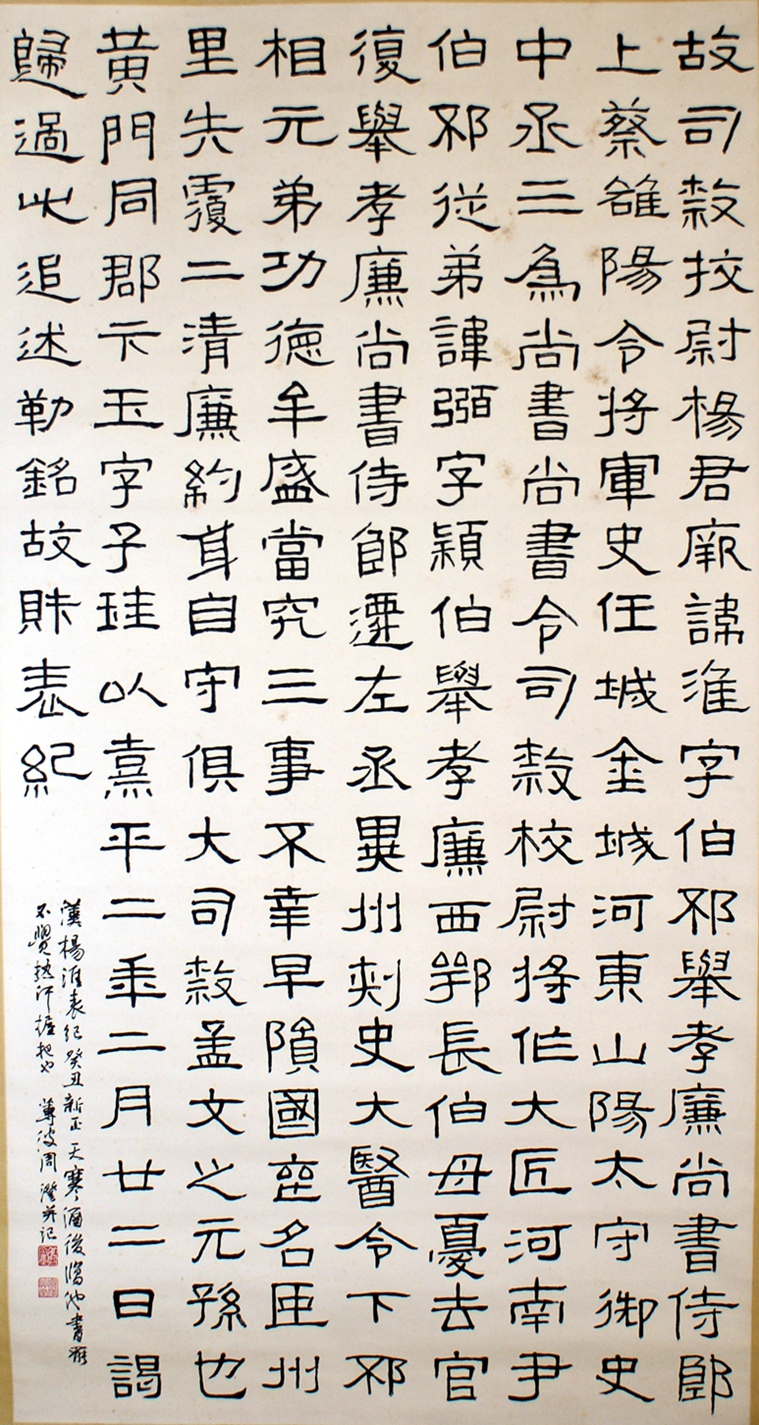 故司隸校尉楊君厥諱淮字伯邳舉孝廉尚書侍郎
上蔡雒陽令將軍史任城金城河東山陽太守御史
中丞三為尚書尚書令司隸校尉將作大匠河南尹
伯邳從弟諱弼字穎伯舉孝廉西鄂長伯母憂去官
復舉孝廉尚書侍郎遷左丞冀州刺史大醫令下邳
相元弟功德牟盛當究三事不幸早隕國喪名臣州
里失覆二清廉約身自守俱大司隸孟文之元孫也
黃門同郡卞玉字子珪以熹平二年二月廿二日謁
歸過此追述勒銘故財表紀
漢楊淮表紀癸丑新正天寒酒後臨池書罷
不覺熱汗握把也 薄波周澄并記